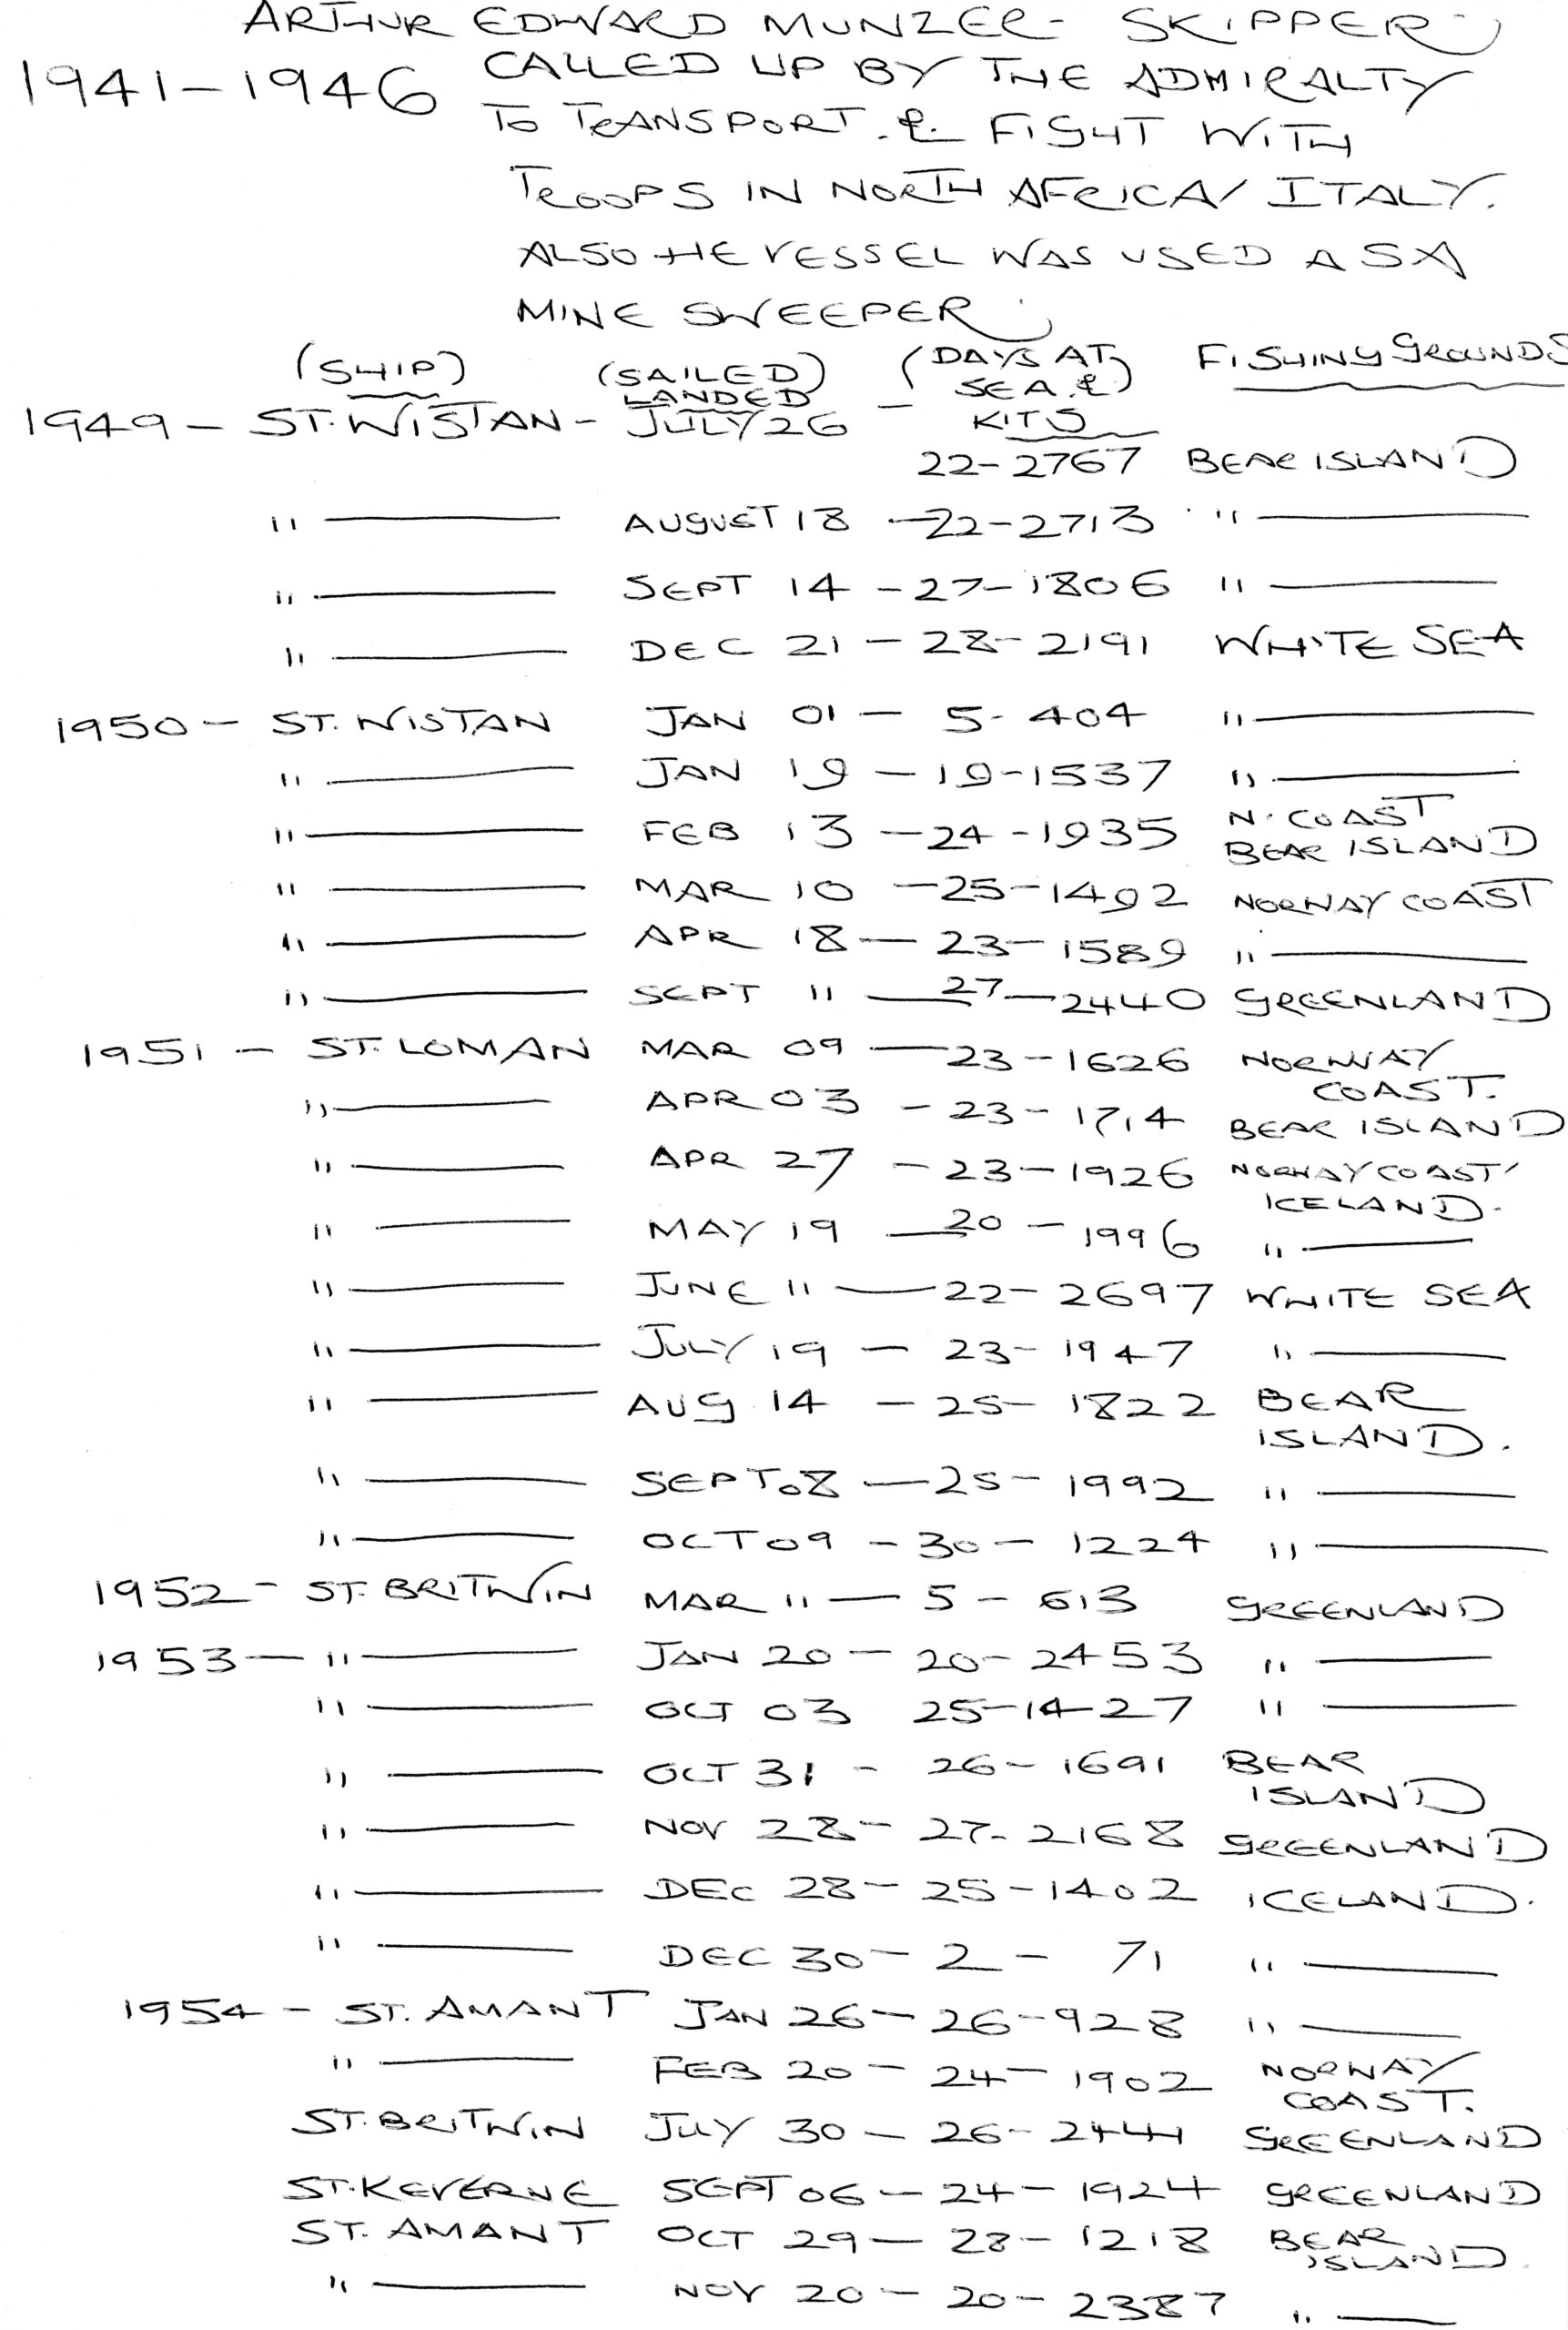 ARTHUR EDWARD MUNZER - SKIPPER
1941-1946 CALLED UP BY THE ADMIRALTY
TO TRANSPORT & FIGHT WITH
TROOPS IN NORTH AFRICA/ ITALY.
ALSO HE VESSEL WAS USED AS A
MINE SWEEPER
(SHIP) (SAILED) (DAYS AT FISHING GROUNDS
LANDED SEA &)
1949 - ST. WISTAN - JULY 26 - KITS
22-2767 BEAR ISLAND
" — AUGUST 18 - 22-2713 " —
" — SEPT 14 - 27-1806 " —
" — DEC 21 - 28-2191 WHITE SEA
1950 - ST. WISTAN JAN 01 - 5-404 " —
" — JAN 19 - 19-1537 " —
" — FEB 13 - 24-1935 N. COAST
BEAR ISLAND
" — MAR 10 - 25-1492 NORWAY COAST
" — APR 18 - 23-1589 " —
" — SEPT 11 - 27-2440 GREENLAND
1951 - ST. LOMAN MAR 09 - 23-1626 NORWAY
COAST.
" — APR 03 - 23-1714 BEAR ISLAND
" — APR 27 - 23-1926 NORWAY COAST/
ICELAND.
" — MAY 19 - 20-1996 " —
" — JUNE 11 - 22-2697 WHITE SEA
" — JULY 19 - 23-1947 " —
" — AUG 14 - 25-1822 BEAR
ISLAND.
" — SEPT 08 - 25-1992 " —
" — OCT 09 - 30-1224 " —
1952 - ST. BRITWIN MAR 11 - 5-613 GREENLAND
1953 - " — JAN 20 - 20-2453 " —
" — OCT 03 25-1427 " —
" — OCT 31 - 26-1691 BEAR
ISLAND
" — NOV 28 - 27-2168 GREENLAND
" — DEC 28 - 25-1402 ICELAND.
" — DEC 30 - 2-71 " —
1954 - ST. AMANT JAN 26 - 26-928 " —
" — FEB 20 - 24-1902 NORWAY
COAST.
ST. BRITWIN JULY 30 - 26-2441 GREENLAND
ST. KEVERNE SEPT 06 - 24-1924 GREENLAND
ST. AMANT OCT 29 - 28-1218 BEAR
ISLAND.
" — NOV 20 - 20-2387 " —